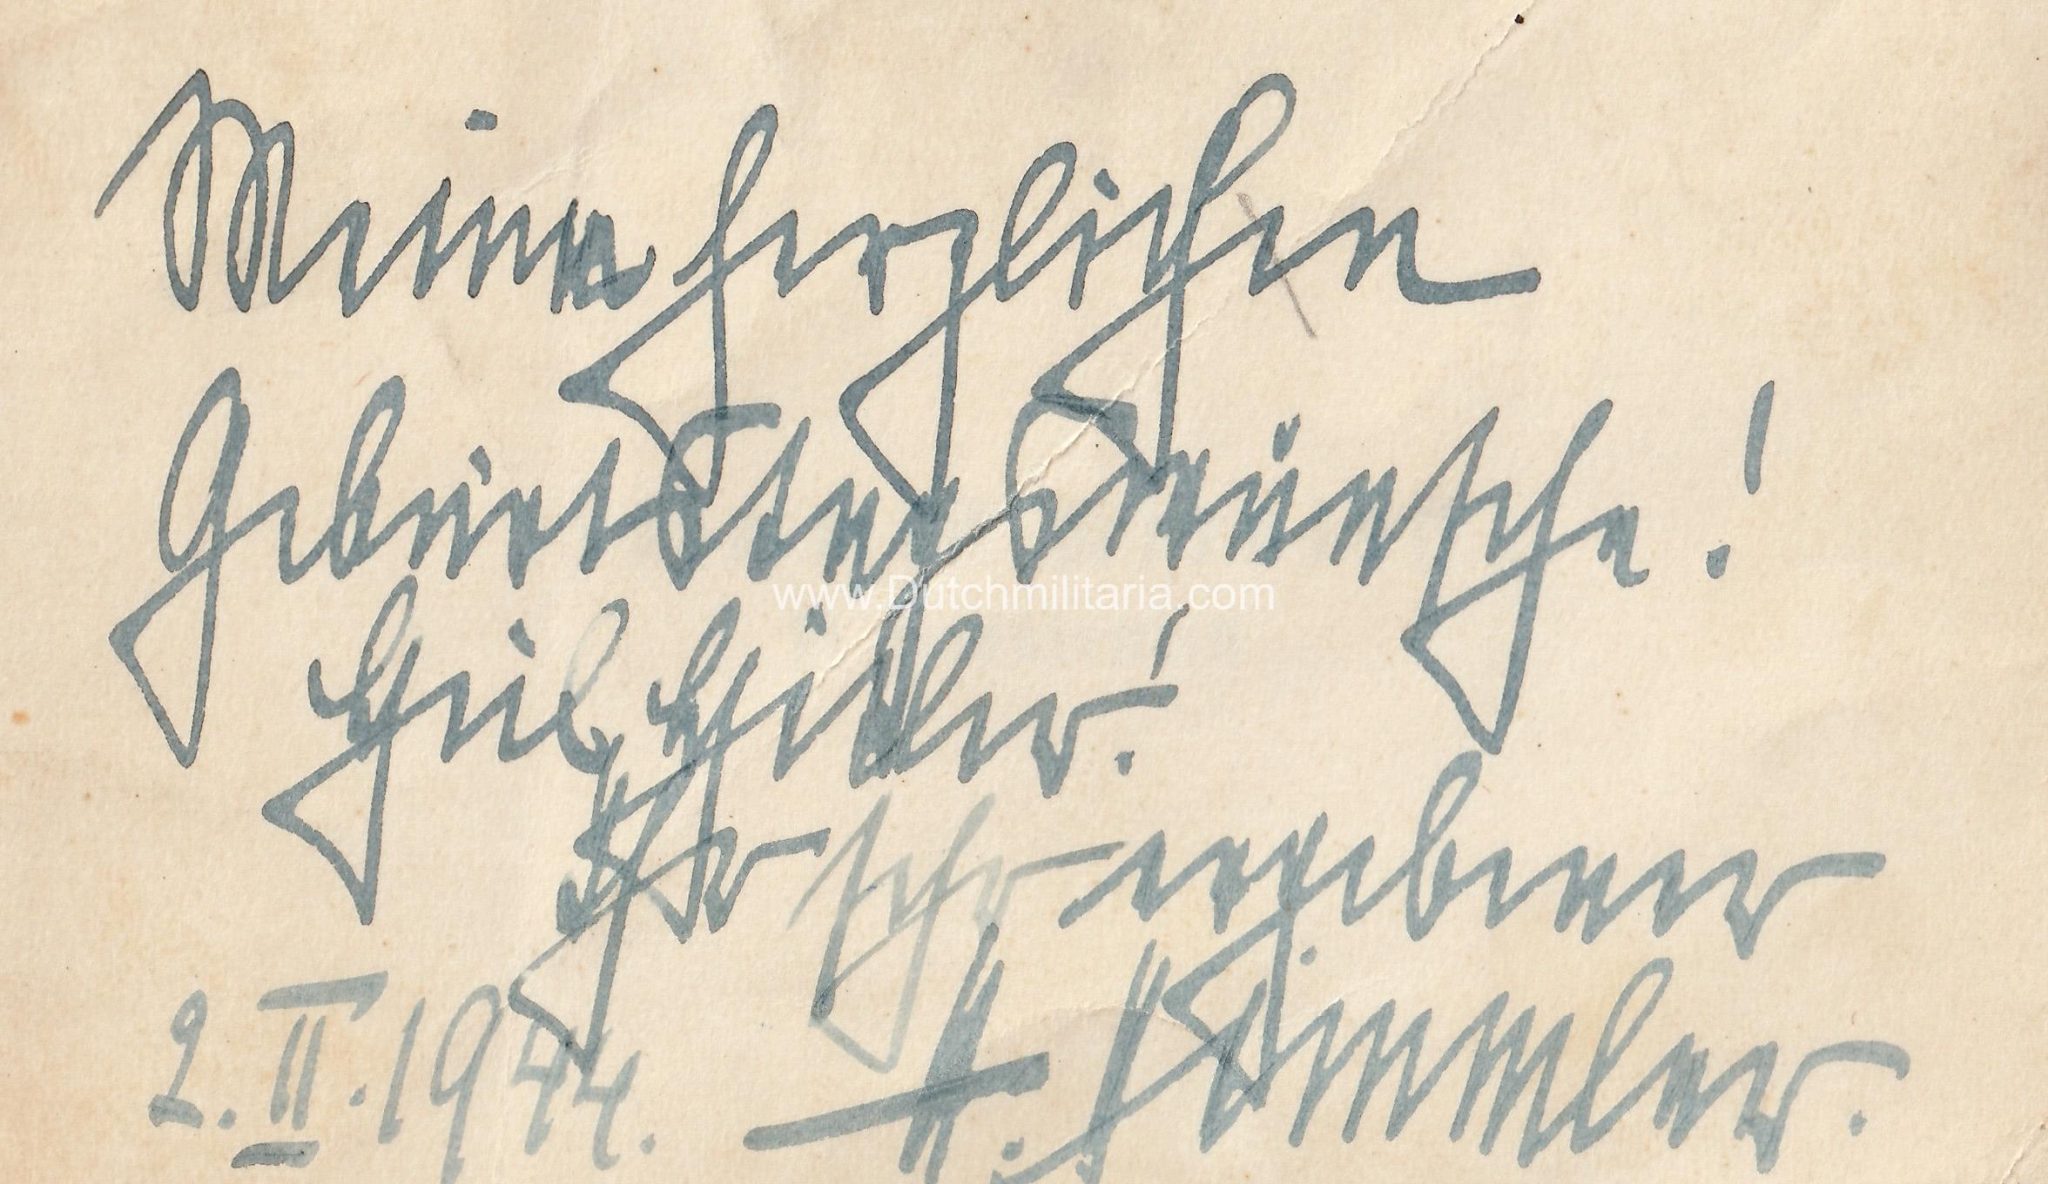 Meine herzlichen
Geburtstagswünsche!
www.Dutchmilitaria.com
Heil Hitler!
Ihr sehr ergebener
2. II. 1944. H. Himmler.